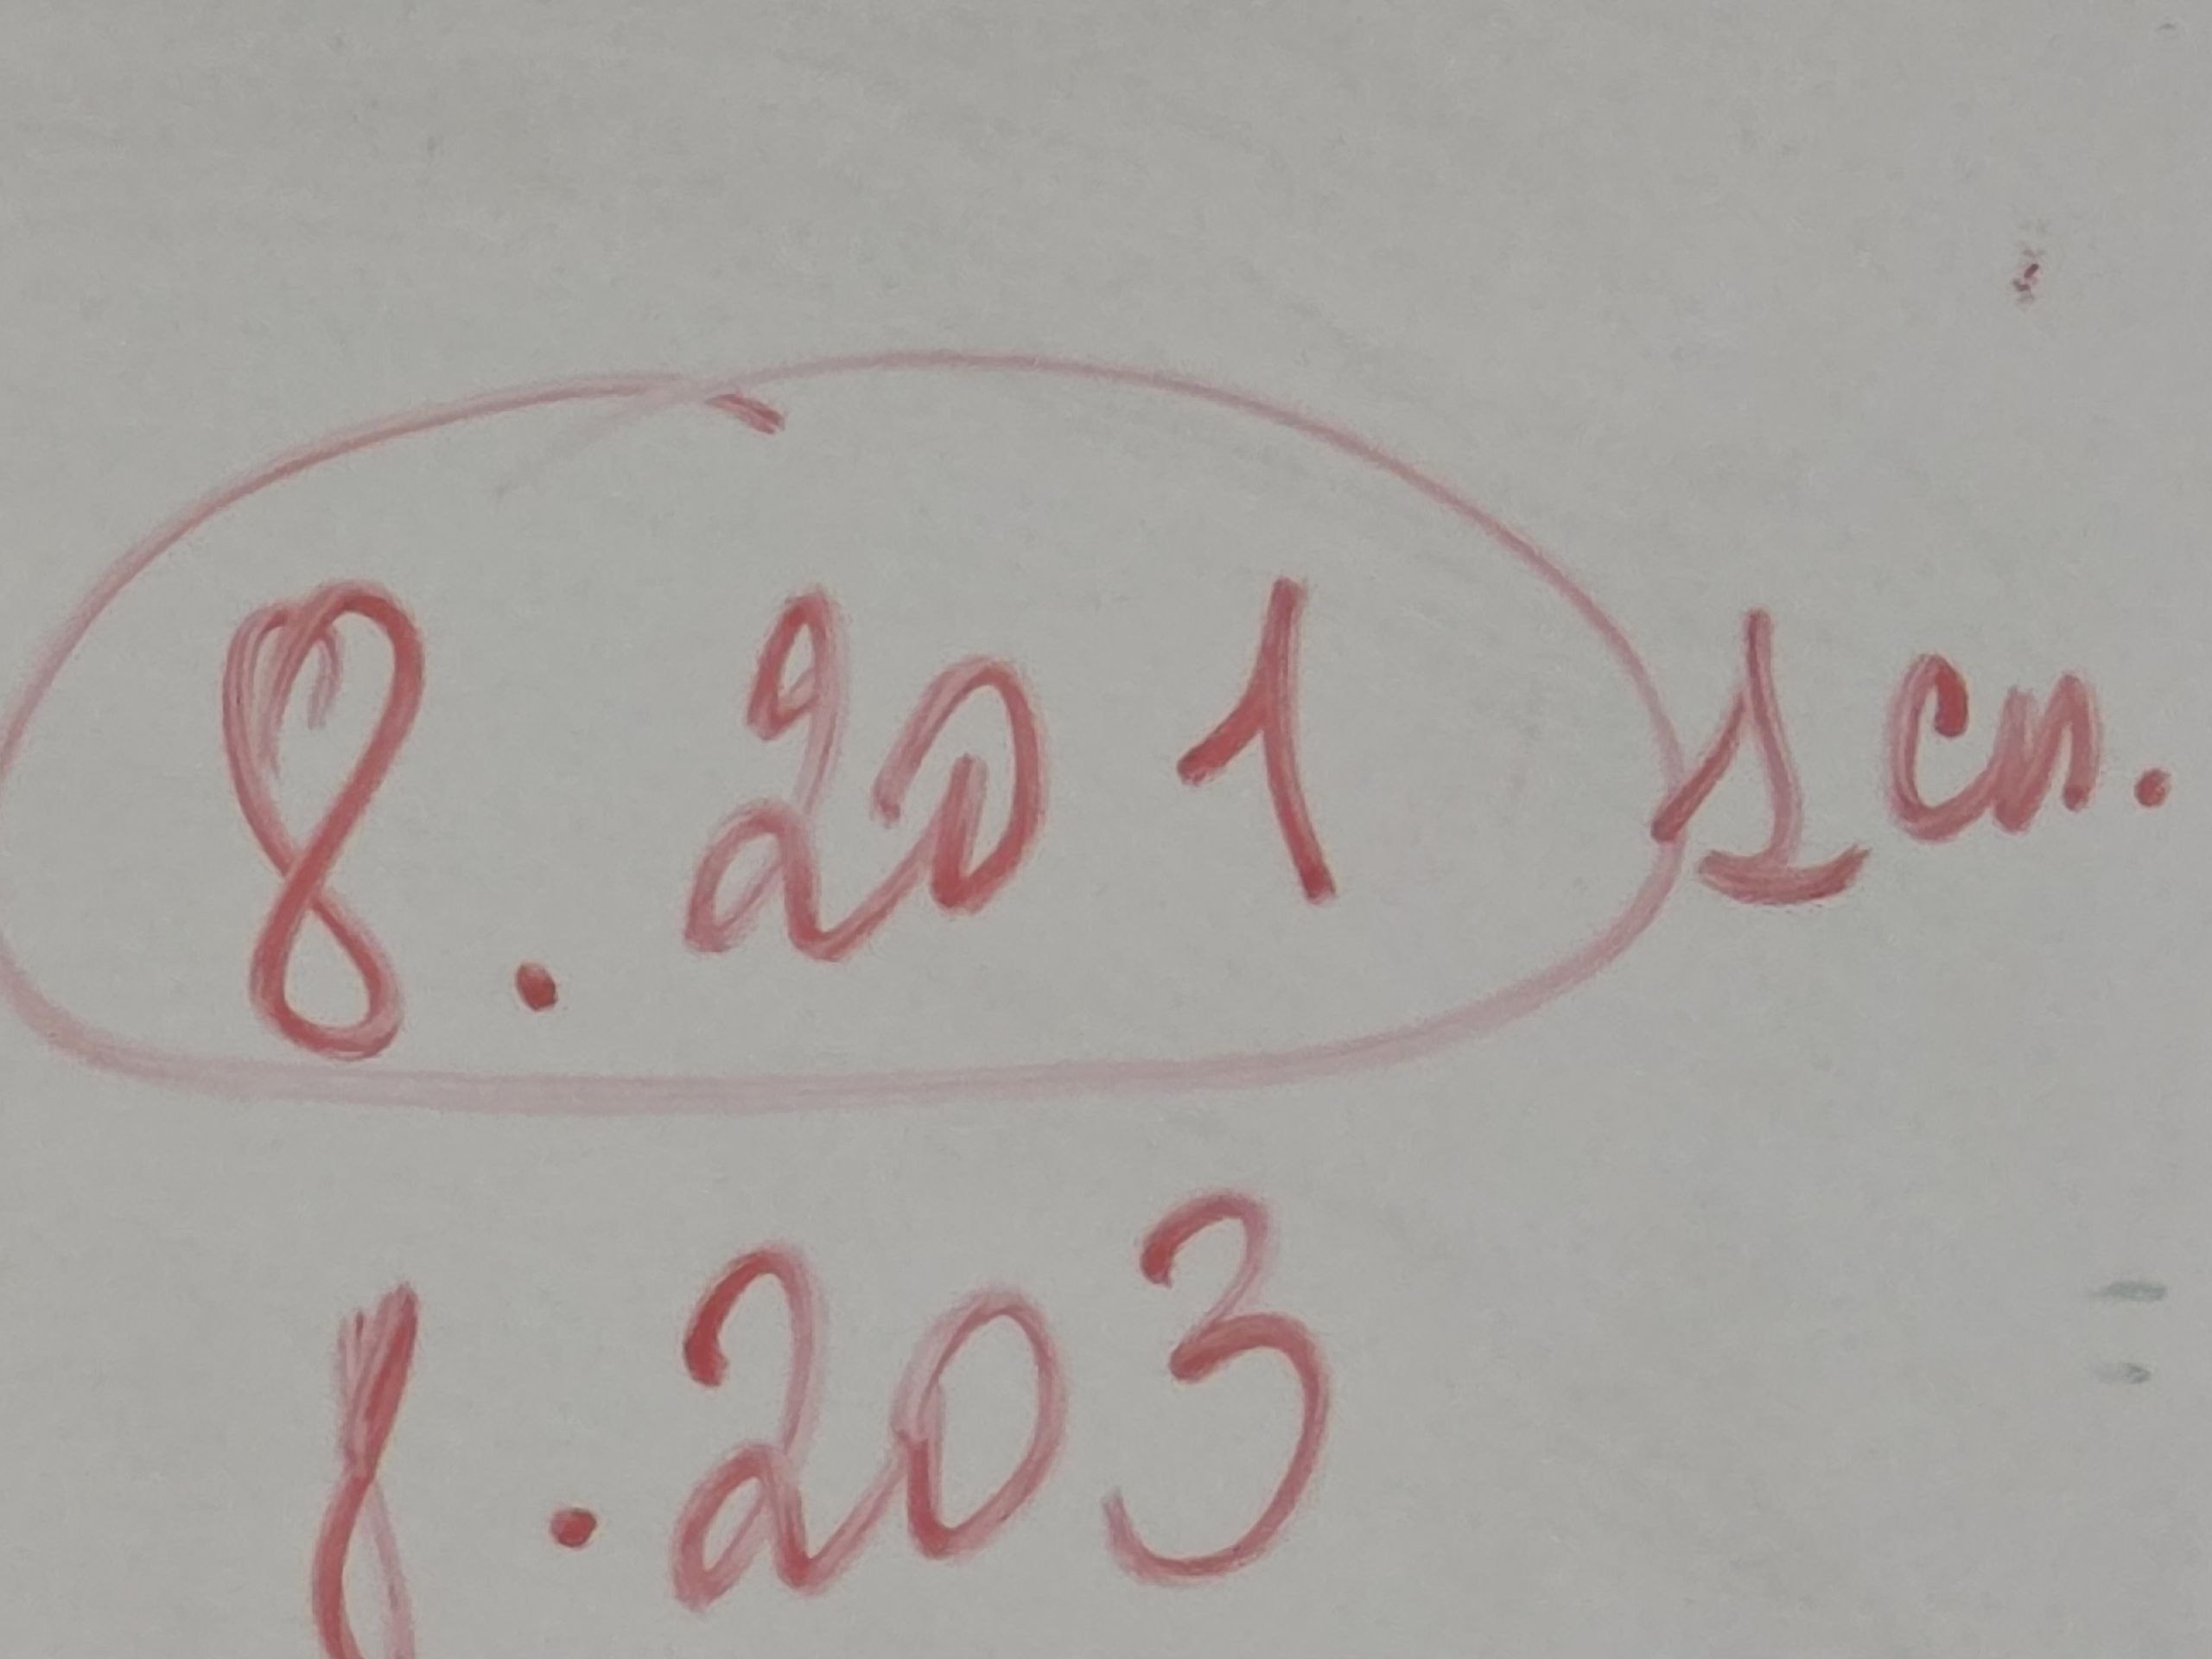 8.201 1 сп.
8.203